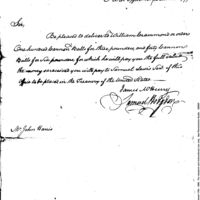 Sir,
Be pleased to deliver to William
One hundred Cannon Balls for three pounders and fifty Cannon
Balls for Six pounders for which he will pay you the full value
the money received you will pay to Samuel Lewis Senr of this
to be placed in the Treasury of the United States
James McHenry
Samuel Hodgdon
Mr John Harris